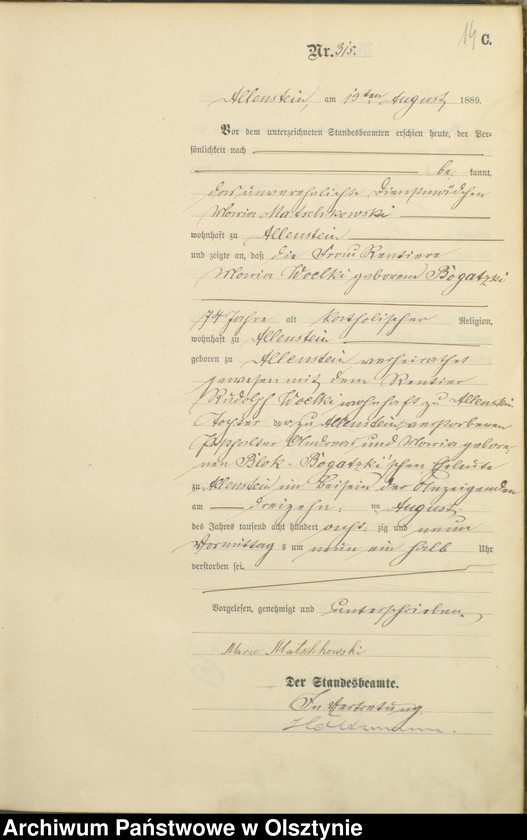 14 C.
Nr. 315.
Allenstein, am 13ten August 1889.
Vor dem unterzeichneten Standesbeamten erschien heute, der Per-
sönlichkeit nach
be kannt,
das unverehelichte Dienstmädchen
Maria Matschkowski
wohnhaft zu Allenstein
und zeigte an, daß die Frau Rentiere
Maria Woelki geborene Bogatzki
74 Jahre alt katholischer Religion,
wohnhaft zu Allenstein
geboren zu Allenstein verheirathet
gewesen mit dem Rentier
Rudolph Woelki wohnhaft zu Allenstein
Tochter der zu Allenstein verstorbenen
Andreas und Maria gebore-
nen Blok - Bogatzki'schen Eheleute
zu Allenstein im Beisein der Anzeigenden
am dreizehn. im August
des Jahres tausend acht hundert acht zig und neun
Vormittag s um neun ein halb Uhr
verstorben sei.
Vorgelesen, genehmigt und unterschrieben.
Marie Matschkowski
Der Standesbeamte.
In Vertretung.
Archiwum Państwowe w Olsztynie